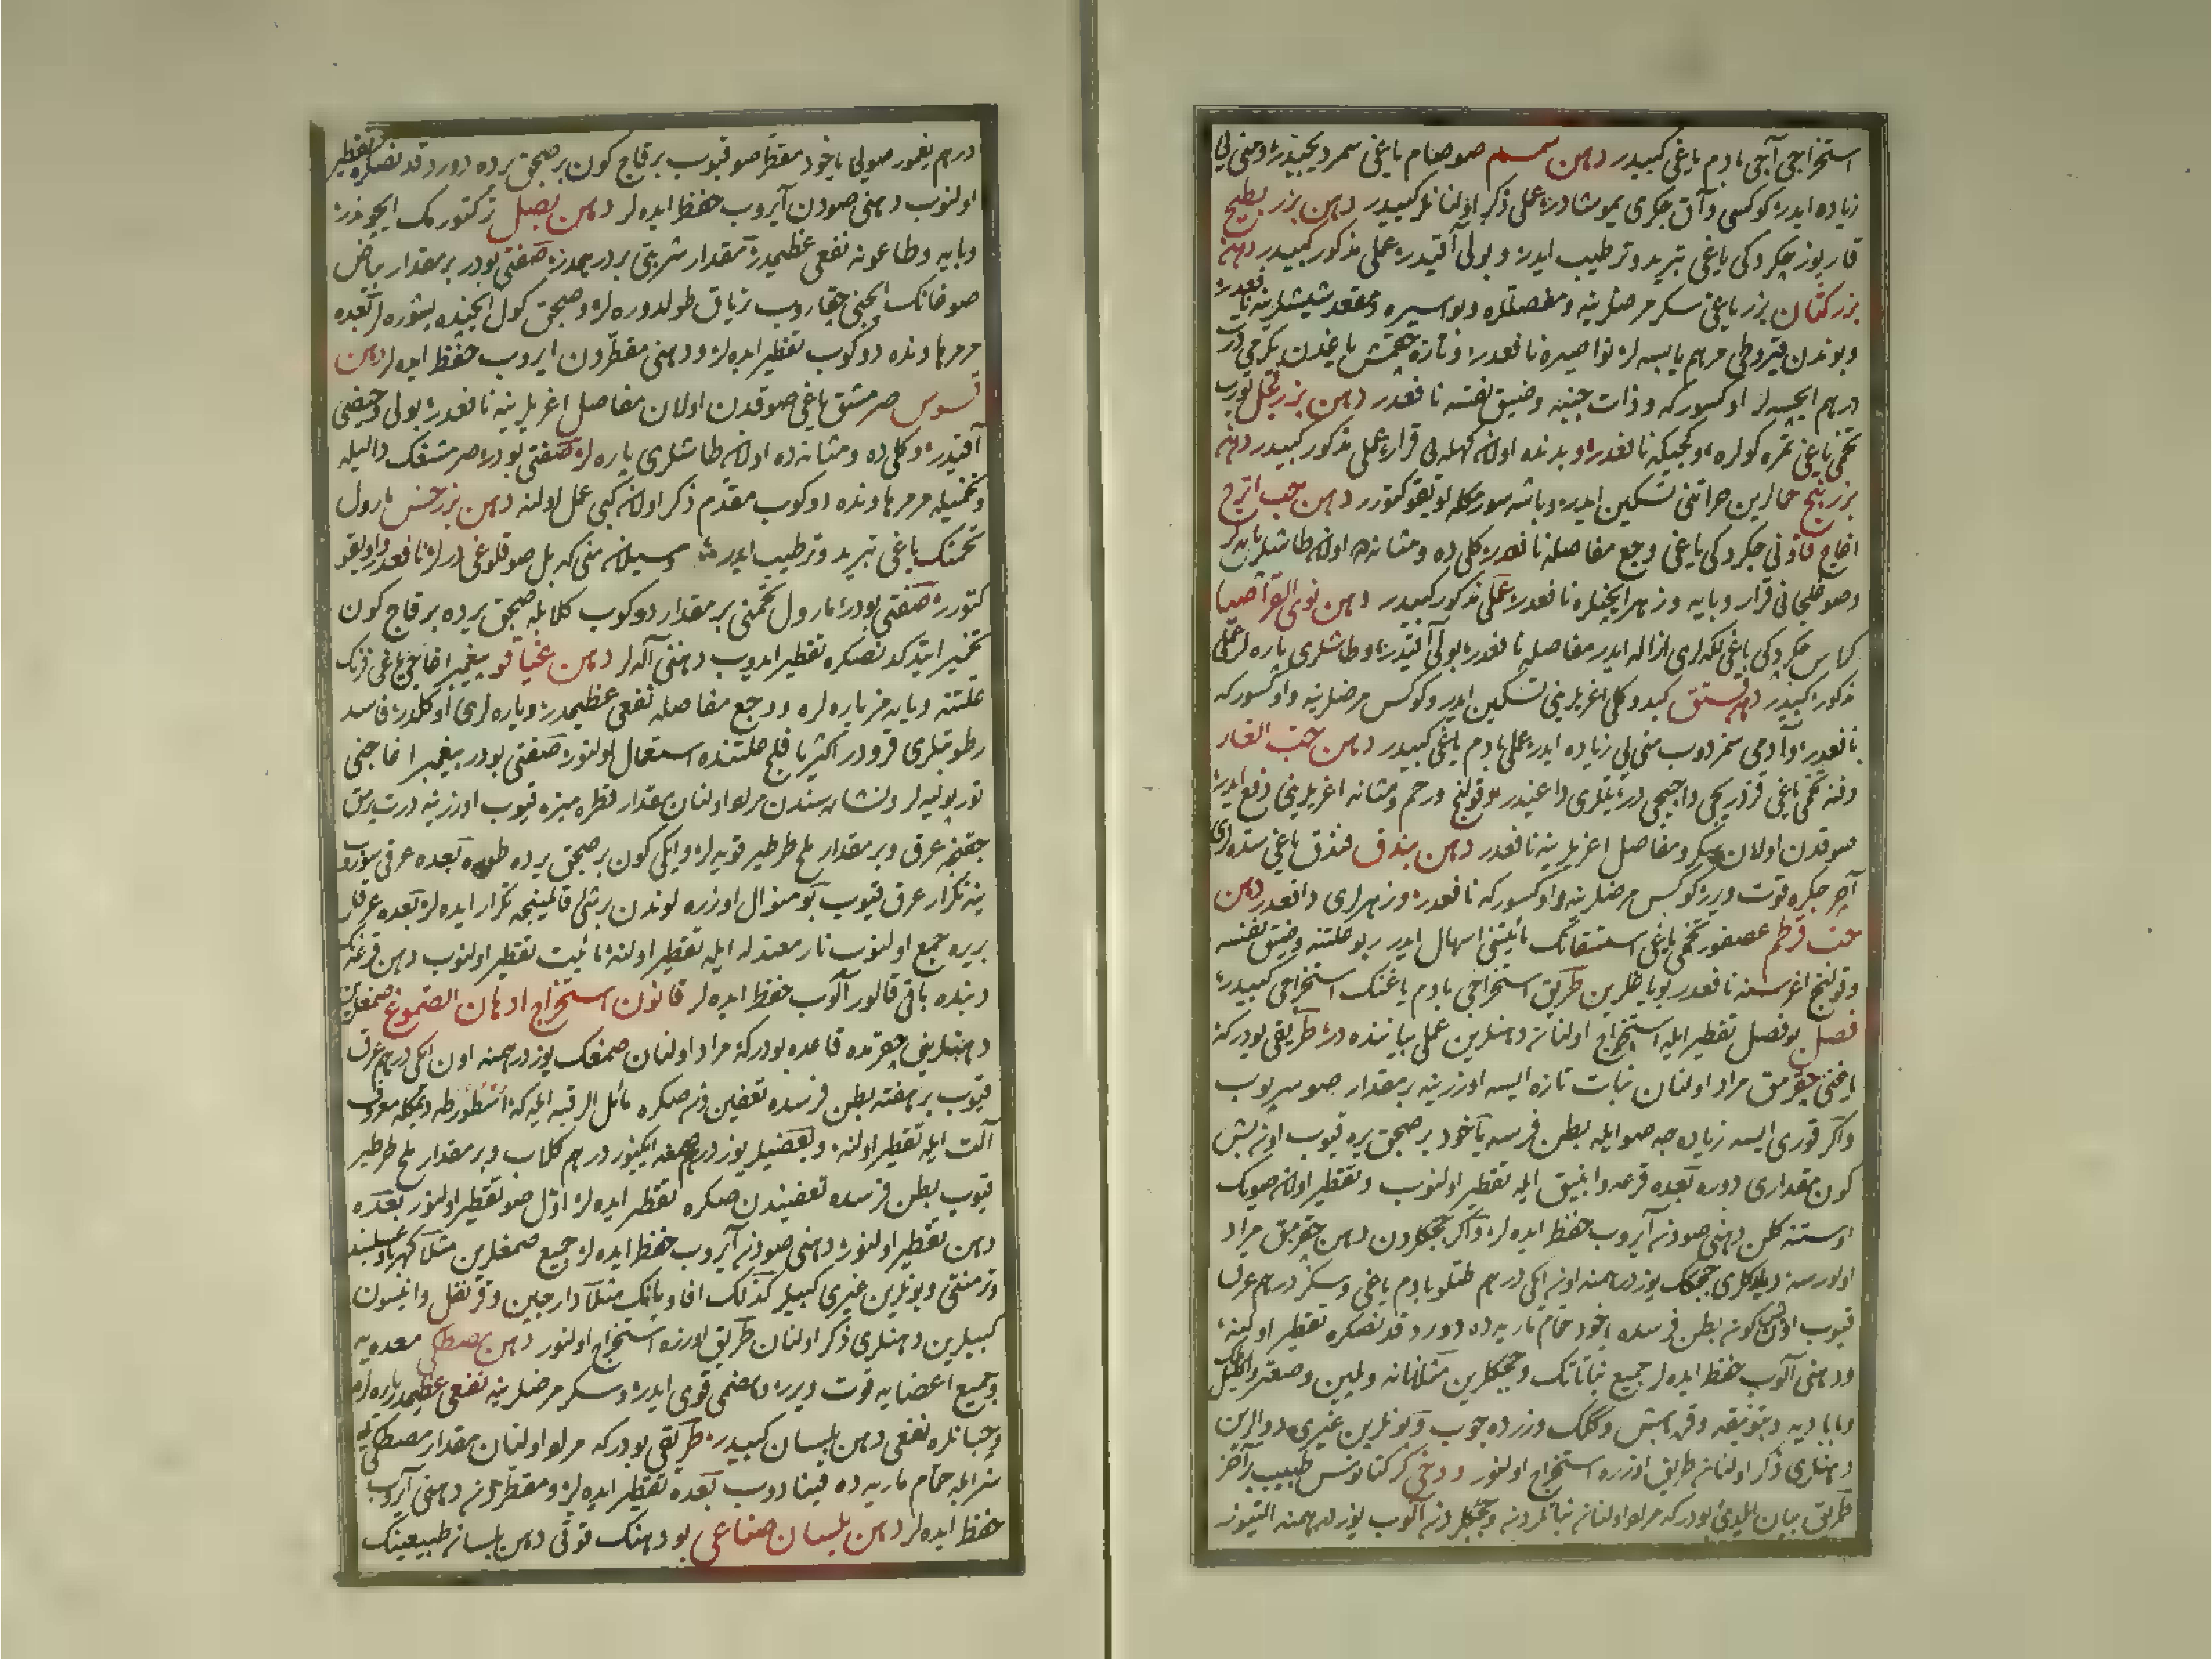 استخراجی آجی بادم یاغی کبیدر دهن سمسم صوصام یاغی سمردیجیدر و منی یی
زیاده ایدر کوکسی و آق جکری یومشادر عملی ذکر اولنانلر کبیدر دهن بزر بطیخ
قارپوز چکردکی یاغی تبرید و ترطیب ایدر و بولی آقیدر عملی مذکور کبیدر دهن
بزر کتان بزر یاغی سکر مرضلرینه و مفصللره و بواسیره و مقعد شیشلرینه نافعدر
و بوندن قیروطی مرهم یاپسه لر نواصیره نافعدر و تازه چقمش یاغندن یکرمی درت
درهم ایچیسه لر اوکسورکه و ذات جنبه و ضیق نفسه نافعدر دهن بزر فجل تورب
تخمی یاغی نافعدر و بدنده اولان کهله یی قرار عملی مذکور کبیدر دهن
بزر بنج حمالرین حراتنی تسکین ایدر و باشه سورمکله اویقو کتورر دهن حب اترج
اغاج قاونی چکردکی یاغی وجع مفاصله نافعدر کلی ده و مشانه ده اولان طاشلری
و صوغلجانی قرار و بایه و زهر ایچنلره نافعدر عملی مذکور کبیدر دهن نوی القراصیا
کراس چکردکی یاغی لکه لری ازاله ایدر مفاصله نافعدر بولی آقیدر و طاشلری پاره لر عملی
مذکور کبیدر دهن فستق کبد و کلی اغریلرینی تسکین ایدر و کوکس مرضلرینه و اوکسورکه
نافعدر و آدمی سمردوب منی یی زیاده ایدر عملی بادم یاغی کبیدر دهن حب الغار
دفنه تخمی یاغی و قولنج و رحم و مشانه اغریلرینی دفع ایدر
صوقدن اولان سکر و مفاصل اغریلرینه نافعدر دهن بندق فندق یاغی
آجر جکره قوت ویرر کوکس مرضلرینه و اوکسورکه نافعدر و زهرلری دافعدر دهن
حب قرطم عصفور تخمی یاغی استسقانک مائیتنی اسهال ایدر ربو علتنه و ضیق نفسه
و قولنج اغریسنه نافعدر بو یاغلرین طریق استخراجی بادم یاغنک استخراجی کبیدر
فصل بو فصل تقطیر ایله استخراج اولنان دهنلرین عملی بیاننده در طریقی بودر که
یاغنی چقرمق مراد اولنان نبات تازه ایسه اوزرینه بر مقدار صو سرپوب
و اکر قوری ایسه زیاده جه صو ایله بطن فرسه یاخود بر صیجق یره قیوب اون بش
کون مقداری دوره بعده قرعه و انبیق ایله تقطیر اولنوب و تقطیر اولان صویک
اوستنه کلن دهنی صودن آیروب حفظ ایده لر و اکر چچکلردن دهن چقرمق مراد
اولورسه دیلدکلری چچک یوز درهمنه اون ایکی درهم طتلو بادم یاغی و سکز درهم عرق
قیوب اون بش کون بطن فرسده یاخود حمام ماریه ده دوردقدنصکره تقطیر اولنه
و دهنی آلوب حفظ ایده لر جمیع نباتاتک و چچکلرین مثلا
و بابادیه و بنفشه و و کلک و زرده چوب و بونلرین غیری دوالرین
دهنلری ذکر اولنان طریق اوزره استخراج اولنور و دخی کرکتانوس طبیب آخر
طریق بیان ایلدی بودر که مراد اولنان نباتلردن و چچکلردن آلوب یوز درهمنه التیوز
درهم یغمور صویی یاخود مقطر صو قیوب برقاج کون بر صیجق یرده دوردقدنصکره تقطیر
اولنوب دهنی صودن آیروب حفظ ایده لر دهن بصل ترکتورمک ایچوندر
وبایه و طاعونه نفعی عظیمدر مقدار شربتی بر درهمدر صنعتی بودر بر مقدار بیاض
صوغانک ایچنی چقاروب تریاق طولدوره لر و صیجق کول ایچنده پشوره لر بعده
مرمر هاونده دوکوب تقطیر ایده لر و دهنی مقطردن ایروب حفظ ایده لر دهن
قسوس صرمشق یاغی صوقدن اولان مفاصل اغریلرینه نافعدر بولی و حیضی
آقیدر و کلی ده و مشانه ده اولان طاشلری پاره لر صنعتی بودر صرمشغک دالیله
و تخمیله مرمر هاونده دوکوب مقدم ذکر اولان کبی عمل اولنه دهن بزر خس مارول
تخمنک یاغی تبرید و ترطیب ایدر و سیلان منی که بل صوقلوغی دیرلر نافعدر و اویقو
کتورر صنعتی بودر مارول تخمنی بر مقدار دوکوب کلابله صیجق یرده برقاج کون
تخمیر ایتدکدنصکره تقطیر ایدوب دهننی آله لر دهن غیاقو پیغمبر اغاجی یاغی فرنک
علتنه و بایه مز یاره لره و وجع مفاصله نفعی عظیمدر و یاره لری اوکلدر فاسد
رطوبتلری قرودر اکثریا فلج علتنده استعمال اولنور صنعتی بودر پیغمبر اغاجنی
تورپولیه لر و نشاره سندن مراد اولنان مقدار قطرمیزه قیوب اوزرینه درت پرمق
چقنجه عرق و بر مقدار ملح طرطیر قویه لر و ایکی کون بر صیجق یرده طوره بعده عرقی سوزوب
ینه تکرار عرق قیوب بو منوال اوزره لوندن بر شی قالمینجه تکرار ایده لر بعده عرقلر
بریره جمع اولنوب نار معتدله ایله تقطیر اولنه مائیت تقطیر اولنوب دهن قرعنک
دبنده باقی قالور آلوب حفظ ایده لر قانون استخراج ادهان الصموغ صمغلرین
دهنلرینی چقرمده قاعده بودر که مراد اولنان صمغک یوز درهمنه اون ایکی درهم عرق
قیوب بر هفته بطن فرسده تعفین دن صکره مائل الرقبه ایله که دیمکله معروف
آلت ایله تقطیر اولنه و بعضیلر یوز درهم صمغه ایکیوز درهم کلاب و بر مقدار ملح طرطیر
قیوب بطن فرسده تعفیندن صکره تقطیر ایده لر اول صو تقطیر اولنور بعده
دهن تقطیر اولنور دهنی صودن آیروب حفظ ایده لر جمیع صمغلرین مثلا کهربا
و ترمنتی و بونلرین غیری کبیلر کذلک افاویه نک مثلا دارچین و قرنفل و انیسون
کبیلرین دهنلری ذکر اولنان طریق اوزره استخراج اولنور دهن مصطکی معده یه
و جمیع اعضایه قوت ویرر هضمی قوی ایدر و سکر مرضلرینه نفعی عظیمدر یاره لره
و جبانلره نفعی دهن بلسان کبیدر طریقی بودر که مراد اولنان مقدار مصطکی یی
شراب ایله حمام ماریه ده قینادوب بعده تقطیر ایده لر و مقطردن دهنی آیروب
حفظ ایده لر دهن بلسان صناعی بو دهنک قوتی دهن بلسان طبیعینک